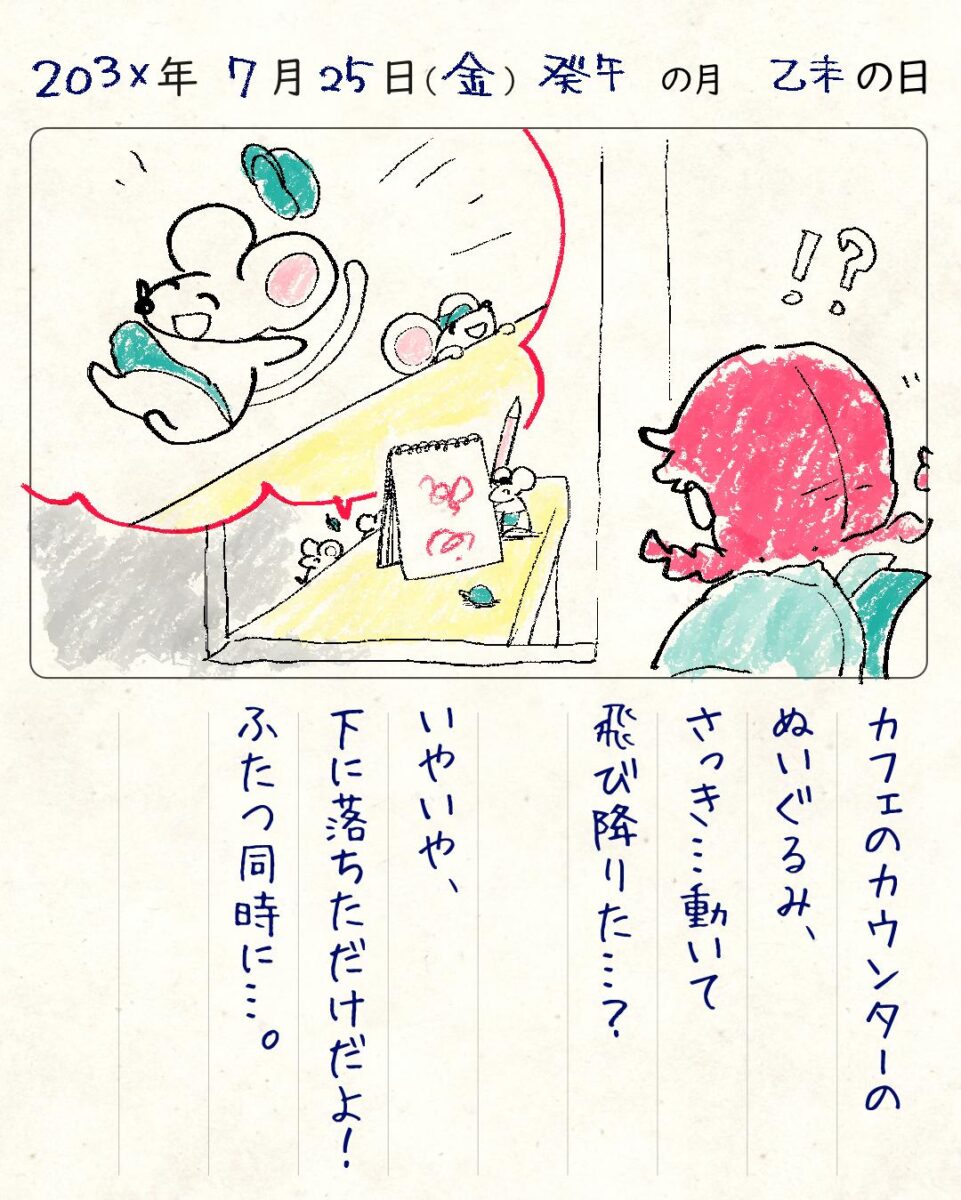 203x年 7月25日(金) 癸午の月 乙未の日
!?
カフェのカウンターの
ぬいぐるみ、
さっき…動いて
飛び降りた…?
いやいや、
下に落ちただけだよ!
ふたつ同時に…。